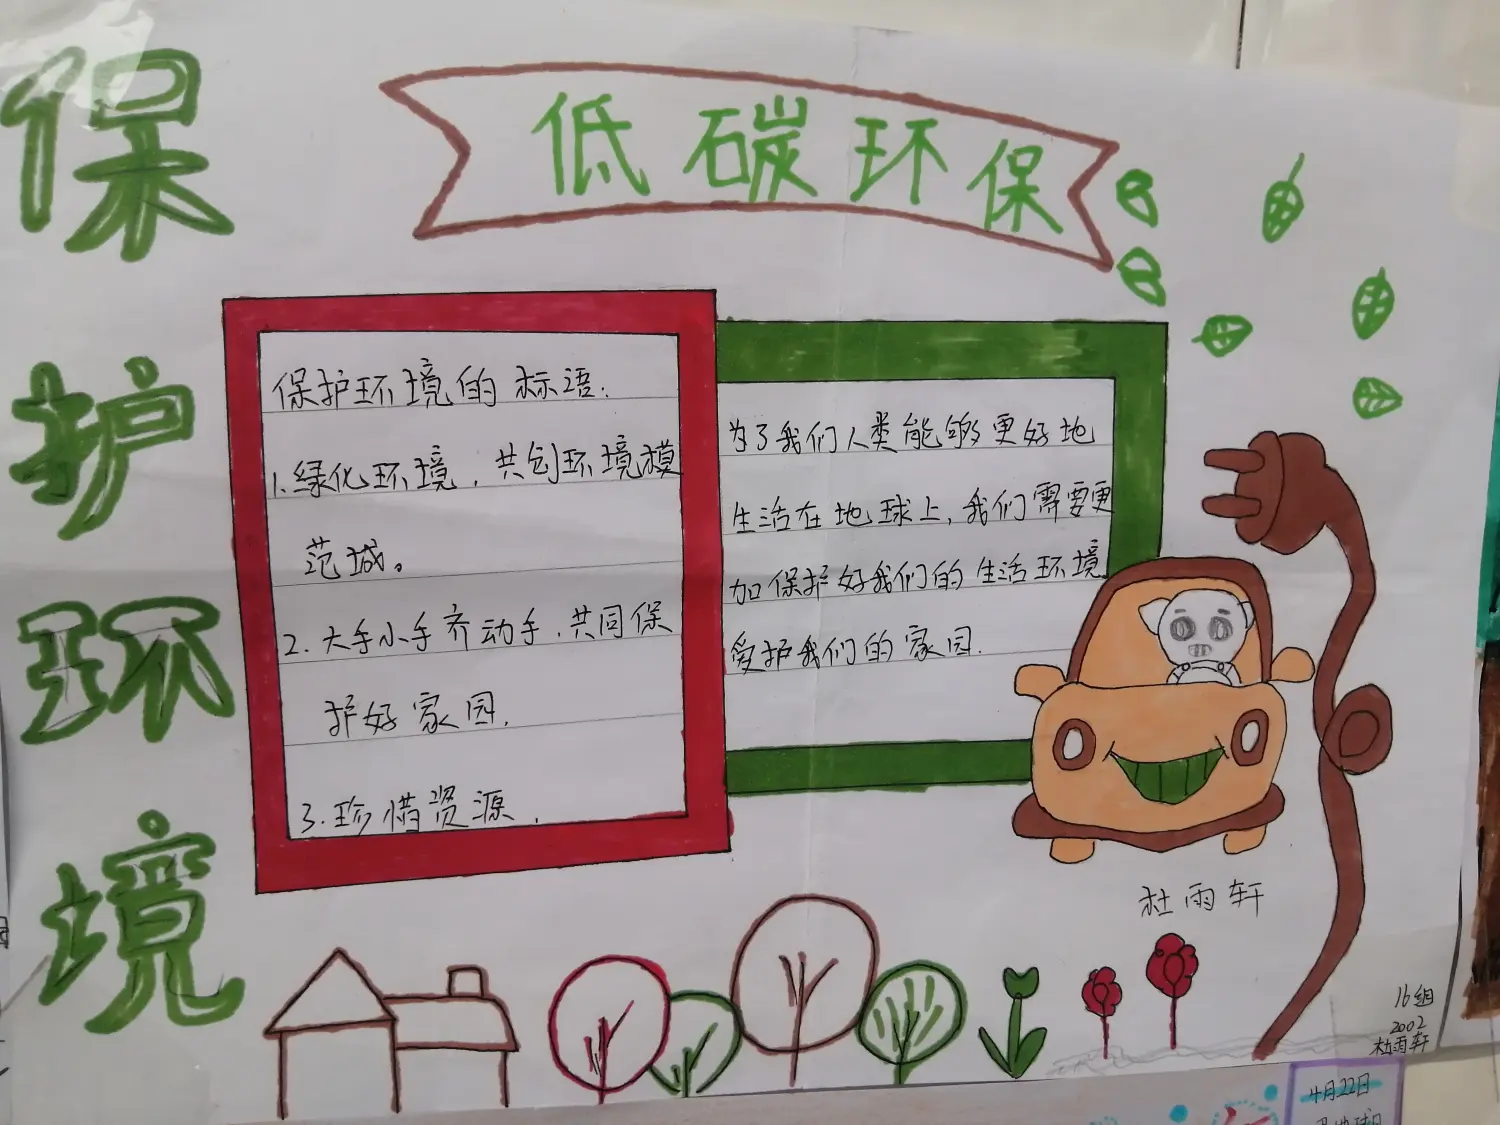 保护环境
低碳环保
保护环境的标语:
1.绿化环境,共创环境模
范城。
2.大手小手齐动手,共同保
护好家园.
3.珍惜资源.
为了我们人类能够更好地
生活在地球上,我们需要更
加保护好我们的生活环境
爱护我们的家园.
杜雨轩
16组
2002
杜雨轩
4月22日